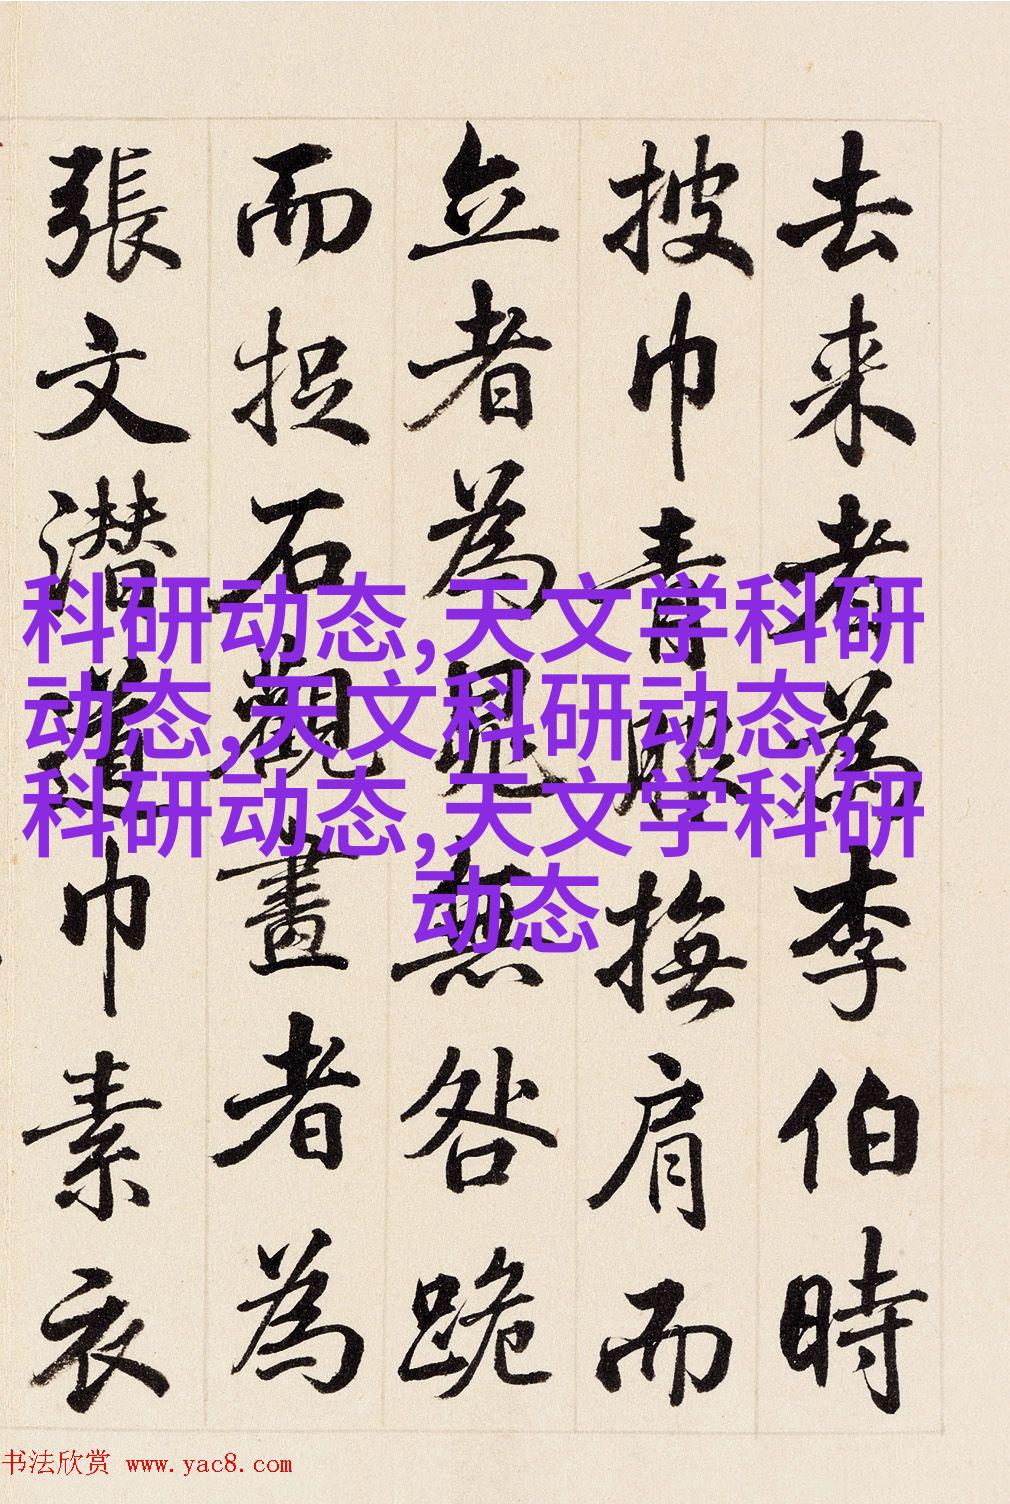 去来者為李伯時
披巾青服撫肩而
立者為晁無咎跪
而捉石觀畫者為
張文潜道巾素衣
科研动态,天文学科研
动态,天文科研动态,
科研动态,天文学科研
动态
书法欣赏 www.yac8.com